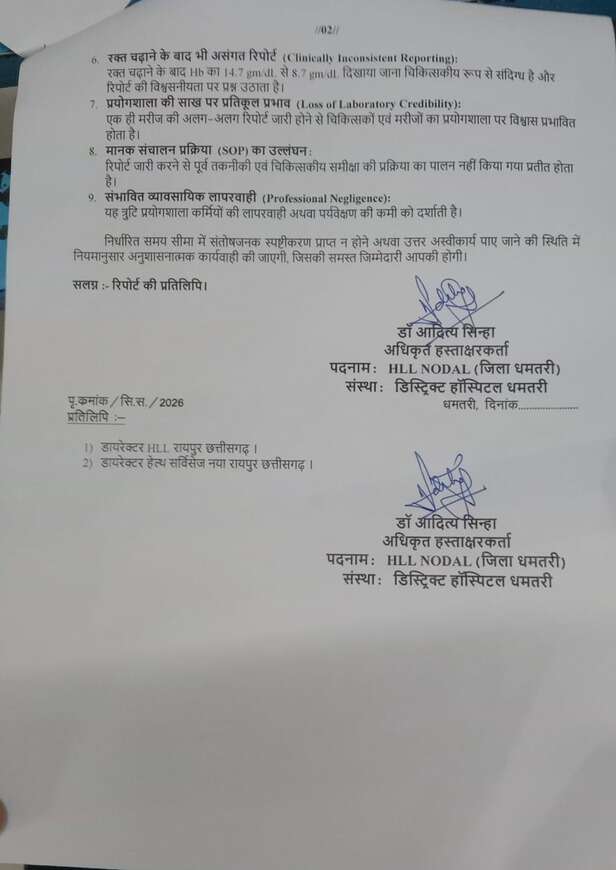 //02//
6. रक्त चढ़ाने के बाद भी असंगत रिपोर्ट (Clinically Inconsistent Reporting):
रक्त चढ़ाने के बाद Hb का 14.7 gm/dL से 8.7 gm/dL दिखाया जाना चिकित्सकीय रूप से संदिग्ध है और
रिपोर्ट की विश्वसनीयता पर प्रश्न उठाता है।
7. प्रयोगशाला की साख पर प्रतिकूल प्रभाव (Loss of Laboratory Credibility):
एक ही मरीज की अलग-अलग रिपोर्ट जारी होने से चिकित्सकों एवं मरीजों का प्रयोगशाला पर विश्वास प्रभावित
होता है।
8. मानक संचालन प्रक्रिया (SOP) का उल्लंघन:
रिपोर्ट जारी करने से पूर्व तकनीकी एवं चिकित्सकीय समीक्षा की प्रक्रिया का पालन नहीं किया गया प्रतीत होता
है।
9. संभावित व्यावसायिक लापरवाही (Professional Negligence):
यह त्रुटि प्रयोगशाला कर्मियों की लापरवाही अथवा पर्यवेक्षण की कमी को दर्शाती है।
निर्धारित समय सीमा में संतोषजनक स्पष्टीकरण प्राप्त न होने अथवा उत्तर अस्वीकार्य पाए जाने की स्थिति में
नियमानुसार अनुशासनात्मक कार्यवाही की जाएगी, जिसकी समस्त जिम्मेदारी आपकी होगी।
सलग्न :- रिपोर्ट की प्रतिलिपि।
डॉ आदित्य सिन्हा
अधिकृत हस्ताक्षरकर्ता
पदनाम : HLL NODAL (जिला धमतरी)
संस्था : डिस्ट्रिक्ट हॉस्पिटल धमतरी
पृ.कमांक / सि.स. / 2026
धमतरी, दिनांक......................
प्रतिलिपि :–
1) डायरेक्टर HLL रायपुर छत्तीसगढ़ ।
2) डायरेक्टर हेल्थ सर्विसेज नया रायपुर छत्तीसगढ़ ।
डॉ आदित्य सिन्हा
अधिकृत हस्ताक्षरकर्ता
पदनाम : HLL NODAL (जिला धमतरी)
संस्था : डिस्ट्रिक्ट हॉस्पिटल धमतरी